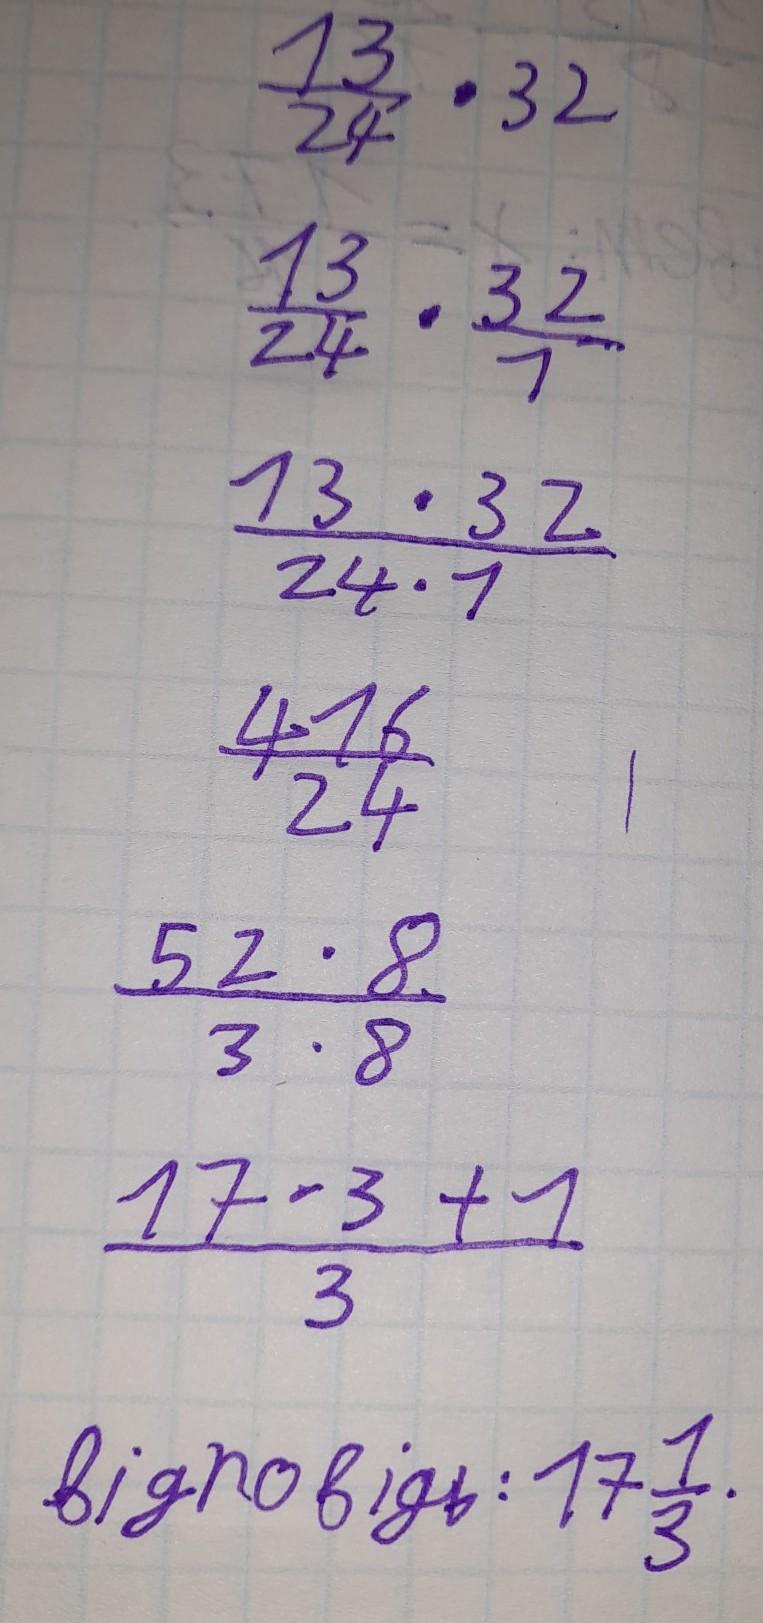 13/24 · 32
13/24 · 32/1
13 · 32 / 24 · 1
416/24
52 · 8 / 3 · 8
17 · 3 + 1 / 3
відповідь: 17 1/3.